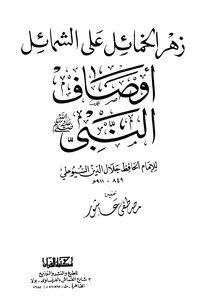 زهر الخمائل على الشمائل
أوصاف
النبي
صلى الله عليه وسلم
للإمام الحافظ جلال الدين السيوطي
٨٤٩ - ٩١١ هـ
تحقيق
مصطفى عاشور
للطبع والنشر والتوزيع